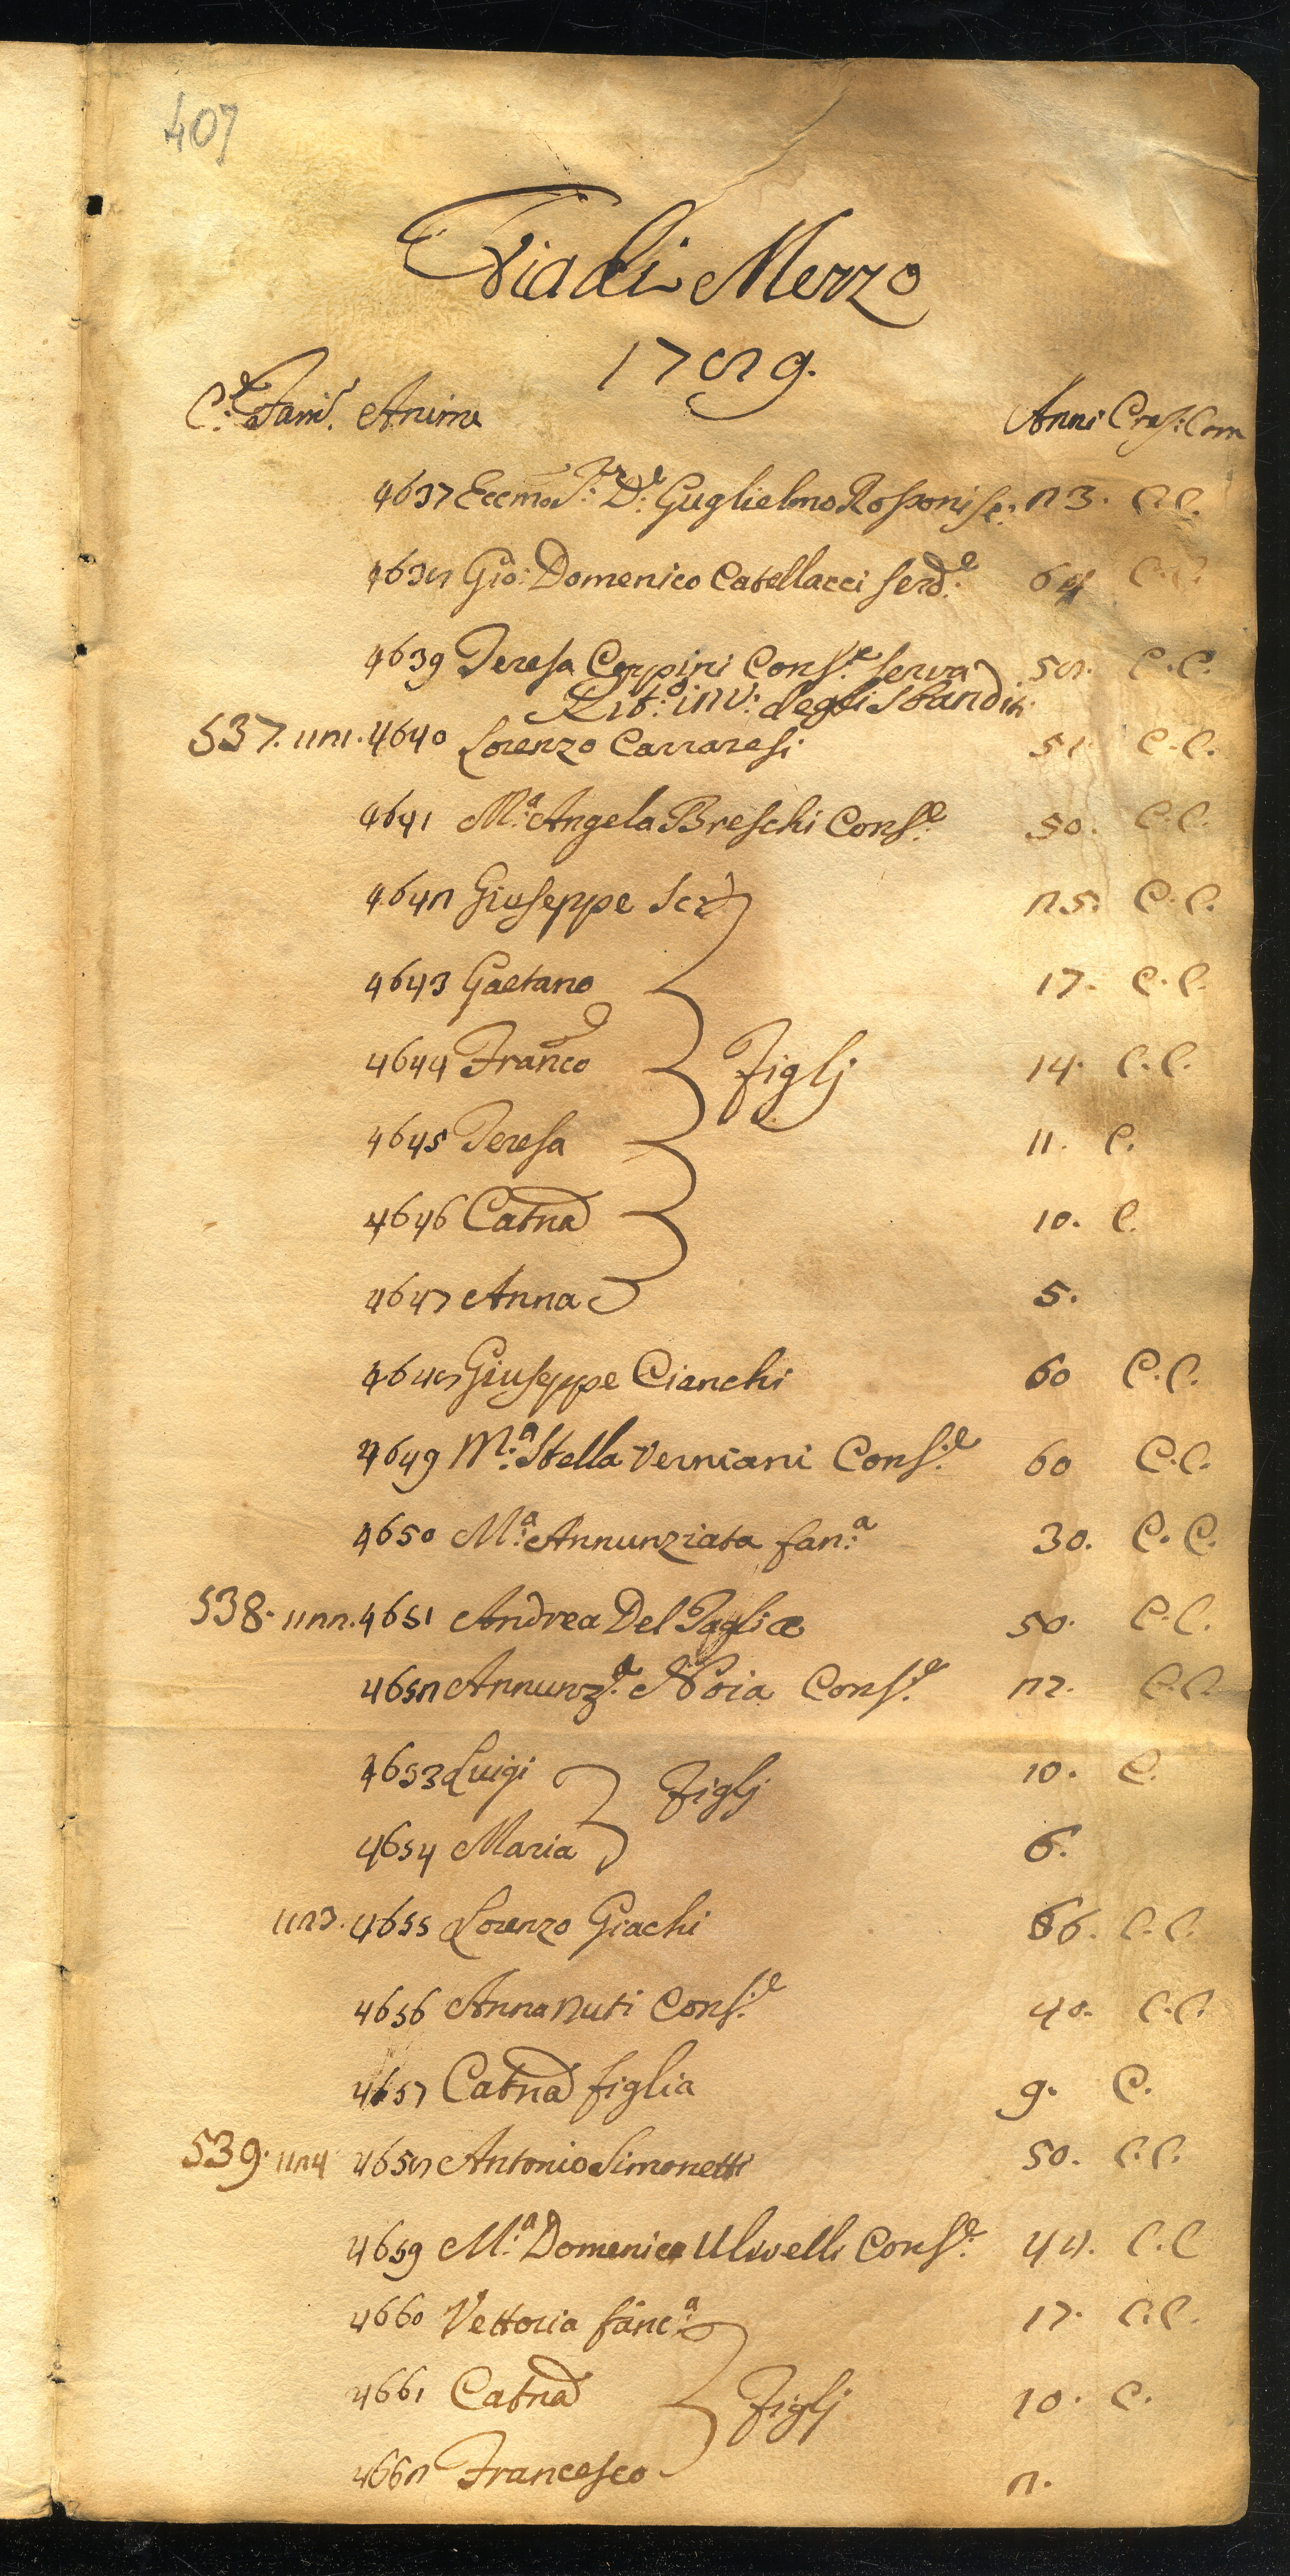 407
Via di Mezzo
1789.
C.e Fami. Anime Anni Cres: Com
4637 Eccmo Sr: D.e Guglielmo Rosponi Sc: 23. C.C.
4638 Gio: Domenico Catellacci Serd.e 64 C.C.
4639 Teresa Cerpini Cons.e Serva 58. C.C.
Lit: inv: degli Sbanditi
537. 1121. 4640 Lorenzo Carraresi 51. C.C.
4641 M.a Angela Breschi Cons.e 50. C.C.
4642 Giuseppe Sco 25. C.C.
4643 Gaetano 17. C.C.
4644 Franco Figlj 14. C.C.
4645 Teresa 11. C.
4646 Catna 10. C.
4647 Anna 5.
4648 Giuseppe Cianchi 60 C.C.
4649 M.a Stella Verniani Cons.e 60 C.C.
4650 M.a Annunziata fan.a 30. C.C.
538. 1122. 4651 Andrea Del Taglia 50. C.C.
4652 Annunz.a Noia Cons.e 27. C.C.
4653 Luigi Figlj 10. C.
4654 Maria 6.
1123. 4655 Lorenzo Giachi 66. C.C.
4656 Anna Nuti Cons.e 40. C.C.
4657 Catna figlia 9. C.
539. 1124 4658 Antonio Simonetti 50. C.C.
4659 M.a Domenica Ulivelli Cons.e 42. C.C
4660 Vettoria fanc.a 17. C.C.
4661 Catna Figlj 10. C.
4662 Francesco 2.